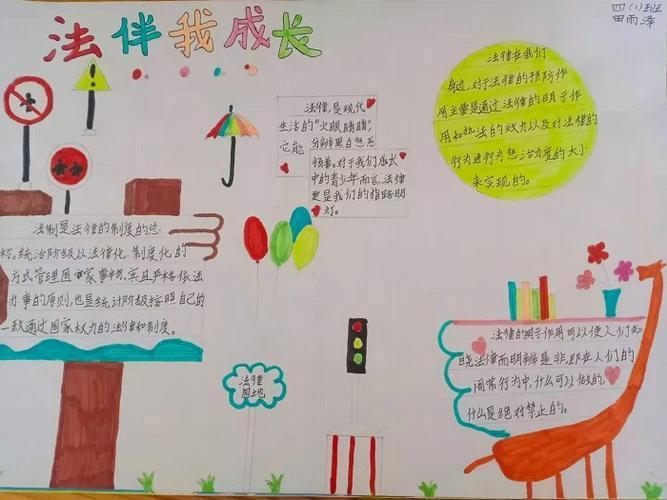 法伴我成长
四(1)班
田雨泽
法律在我们
身边,对于法律的预防作
用主要是通过法律的明示作
用和执法的效力以及对法律的
行为进行为惩治力度的大小
来实现的。
法律,是现代
生活的“火眼睛睛”,
它能分辨黑白惩恶
扬善。对于我们成长
中的青少年而言,法律
更是我们的指路明
灯。
法制是法律的制度的总
称。统治阶级以法律化、制度化的
方式管理国家事务,实且严格依法
办事的原则,也是统计阶级按照自己的
一致通过国家权力的法律和制度。
法律
园地
法律的明示作用可以使人们知
晓法律而明辨是非,即在人们的
闹常行为中,什么可以做的,
什么是绝对禁止的。